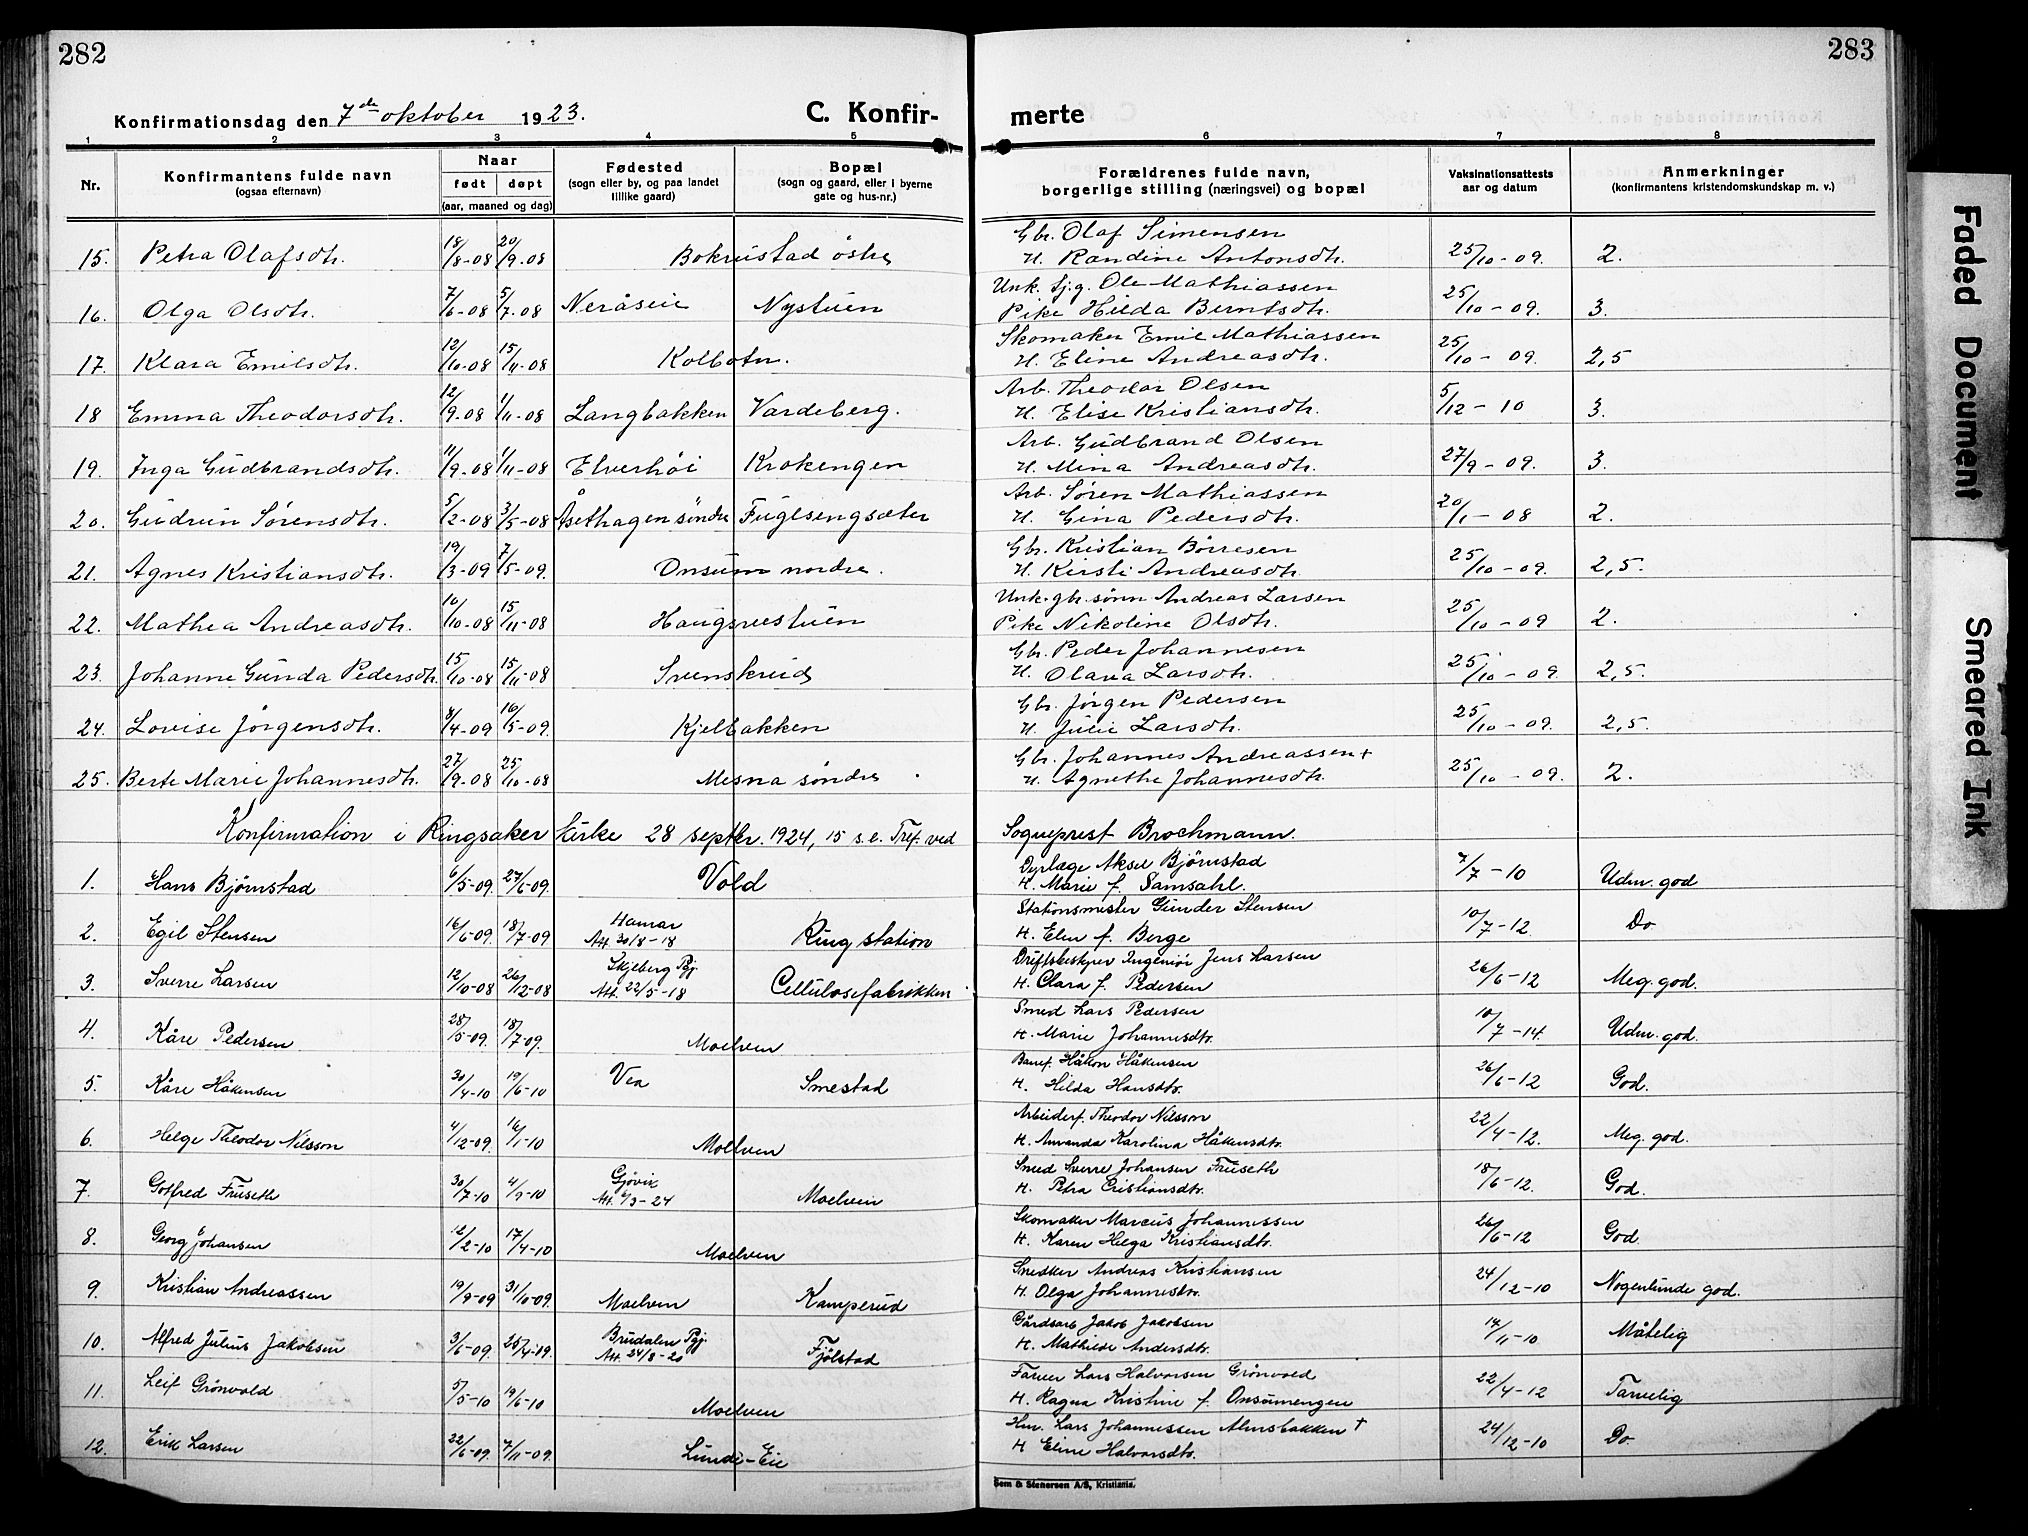 282
283
Konfirmationsdag den 7de oktober 1923.
C. Konfir-
merte
1 2 3 4 5 6 7 8
Nr. Konfirmantens fulde navn (ogsaa efternavn) Naar født døpt (aar, maaned og dag) Fødested (sogn eller by, og paa landet tillike gaard) Bopæl (sogn og gaard, eller i byerne gate og hus-nr.) Forældrenes fulde navn, borgerlige stilling (næringsvei) og bopæl Vaksinationsattests aar og datum Anmerkninger (konfirmantens kristendomskundskap m. v.)
15. Petra Olafsdtr. 18/8-08 20/9-08 Bokrustad östre Gbr. Olaf Simensen H. Randine Antonsdtr. 25/10-09. 2.
16. Olga Olsdtr. 7/6-08 5/7-08 Neråseie Nystuen Unk. Tj.g. Ole Mathiassen Pike Hilda Berntsdtr. 25/10-09. 3.
17. Klara Emilsdtr. 12/10-08 15/11-08 Kolbotn. Skomaker Emil Mathiassen H. Eline Andreasdtr. 25/10-09. 2,5
18 Emma Theodorsdtr. 12/9-08 1/11-08 Langbakken Vardeberg. Arb. Theodor Olsen H. Elise Kristiansdtr. 5/12-10 3.
19. Inga Gudbrandsdtr. 11/9-08 1/11-08 Elverhöi Krokengen Arb. Gudbrand Olsen H. Mina Andreasdtr. 27/9-09. 3.
20. Gudrun Sørensdtr. 5/2-08 3/5-08 Åsethagen söndre Fuglsengsæter Arb. Søren Mathiassen H. Gina Pedersdtr. 20/1-08 2.
21. Agnes Kristiansdtr. 19/3-09 7/5-09. Onsum nordre. Gbr. Kristian Börresen H. Kirsti Andreasdtr. 25/10-09. 2,5.
22. Mathea Andreasdtr. 10/10-08 15/11-08 Haugsvestuen Unk. gbr.sönn Andreas Larsen Pike Nikoline Olsdtr. 25/10-09 2.
23. Johanne Gunda Pedersdtr. 15/10-08 15/11-08 Svenskrud Gbr. Peder Johannesen H. Olava Larsdtr. 25/10-09. 2,5.
24. Lovise Jörgensdtr. 8/4-09 16/5-09. Kjelbakken Gbr. Jörgen Pedersen H. Julie Larsdtr. 25/10-09. 2,5.
25. Berte Marie Johannesdtr. 27/9-08 25/10-08 Mesna söndre Gbr. Johannes Andreassen + H. Agnethe Johannesdtr. 25/10-09. 2.
Konfirmation i Ringsaker kirke 28 septbr. 1924, 15 s.e. Tref. ved Sogneprest Brochmann.
1. Hans Bjørnstad 6/5-09. 27/6-09. Vold Dyrlæge Aksel Bjørnstad H. Marie f. Samsahl. 7/7-10 Udm. god
2. Egil Stensen 16/6-09. 18/7-09 Hamar Att. 30/8-18 Ring station Stationsmester Gunder Stensen H. Elen f. Berge 10/7-12. Do
3. Sverre Larsen 12/10-08 26/12-08 Skjeberg Pgj. Att. 22/5-18 Cellulosefabrikken Driftsbestyrer Ingeniör Jens Larsen H. Clara f. Pedersen 26/6-12 Meg. god.
4. Kåre Pedersen 28/5-09. 18/7-09. Moelven Smed Lars Pedersen H. Marie Johannesdtr. 10/7-14. Udm. god.
5. Kåre Håkensen 30/4-10 19/6-10 Vea Smestad Banef. Håkon Håkensen H. Hilda Hansdtr. 26/6-12 God.
6. Helge Theodor Nilsson 4/12-09. 16/1-10 Moelven Arbeiderf. Theodor Nilsson H. Amanda Karolina Håkensdtr. 22/4-12. Meg. god.
7. Gotfred Fruseth 30/7-10 4/9-10 Gjøvik Att. 6/3-24 Moelven Smed Sverre Johansen Fruseth H. Petra Cristiansdtr. 18/6-12. God.
8. Georg Johansen 12/2-10 17/4-10 Moelven Skomaker Marcus Johannessen H. Karen Helga Kristiansdtr. 26/6-12 God
9. Kristian Andreassen 19/9-09 31/10-09. Moelven Kamperud Snedker Andreas Kristiansen H. Olga Johannesdtr. 24/12-10 Nogenlunde god.
10. Alfred Julius Jakobsen 3/6-09. 25/4-09. Brudalen Pgj. Att. 24/8-20 Fjölstad Gårdsarb. Jakob Jakobsen H. Mathilde Andersdtr. 14/11-10 Måtelig
11. Leif Grönvold 5/5-10 19/6-10 Moelven Farver Lars Halvorsen Grönvold H. Ragna Kristine f. Onsumengen 22/4-12 Tarvelig
12. Erik Larsen 22/6-09. 7/11-09. Lunde-Eie Hm. Lars Johannessen Almsbakken † H Eline Halvorsdtr. 24/12-10 Do.
Sem & Stenersen A/S, Kristiania.
Faded Document
Smeared Ink